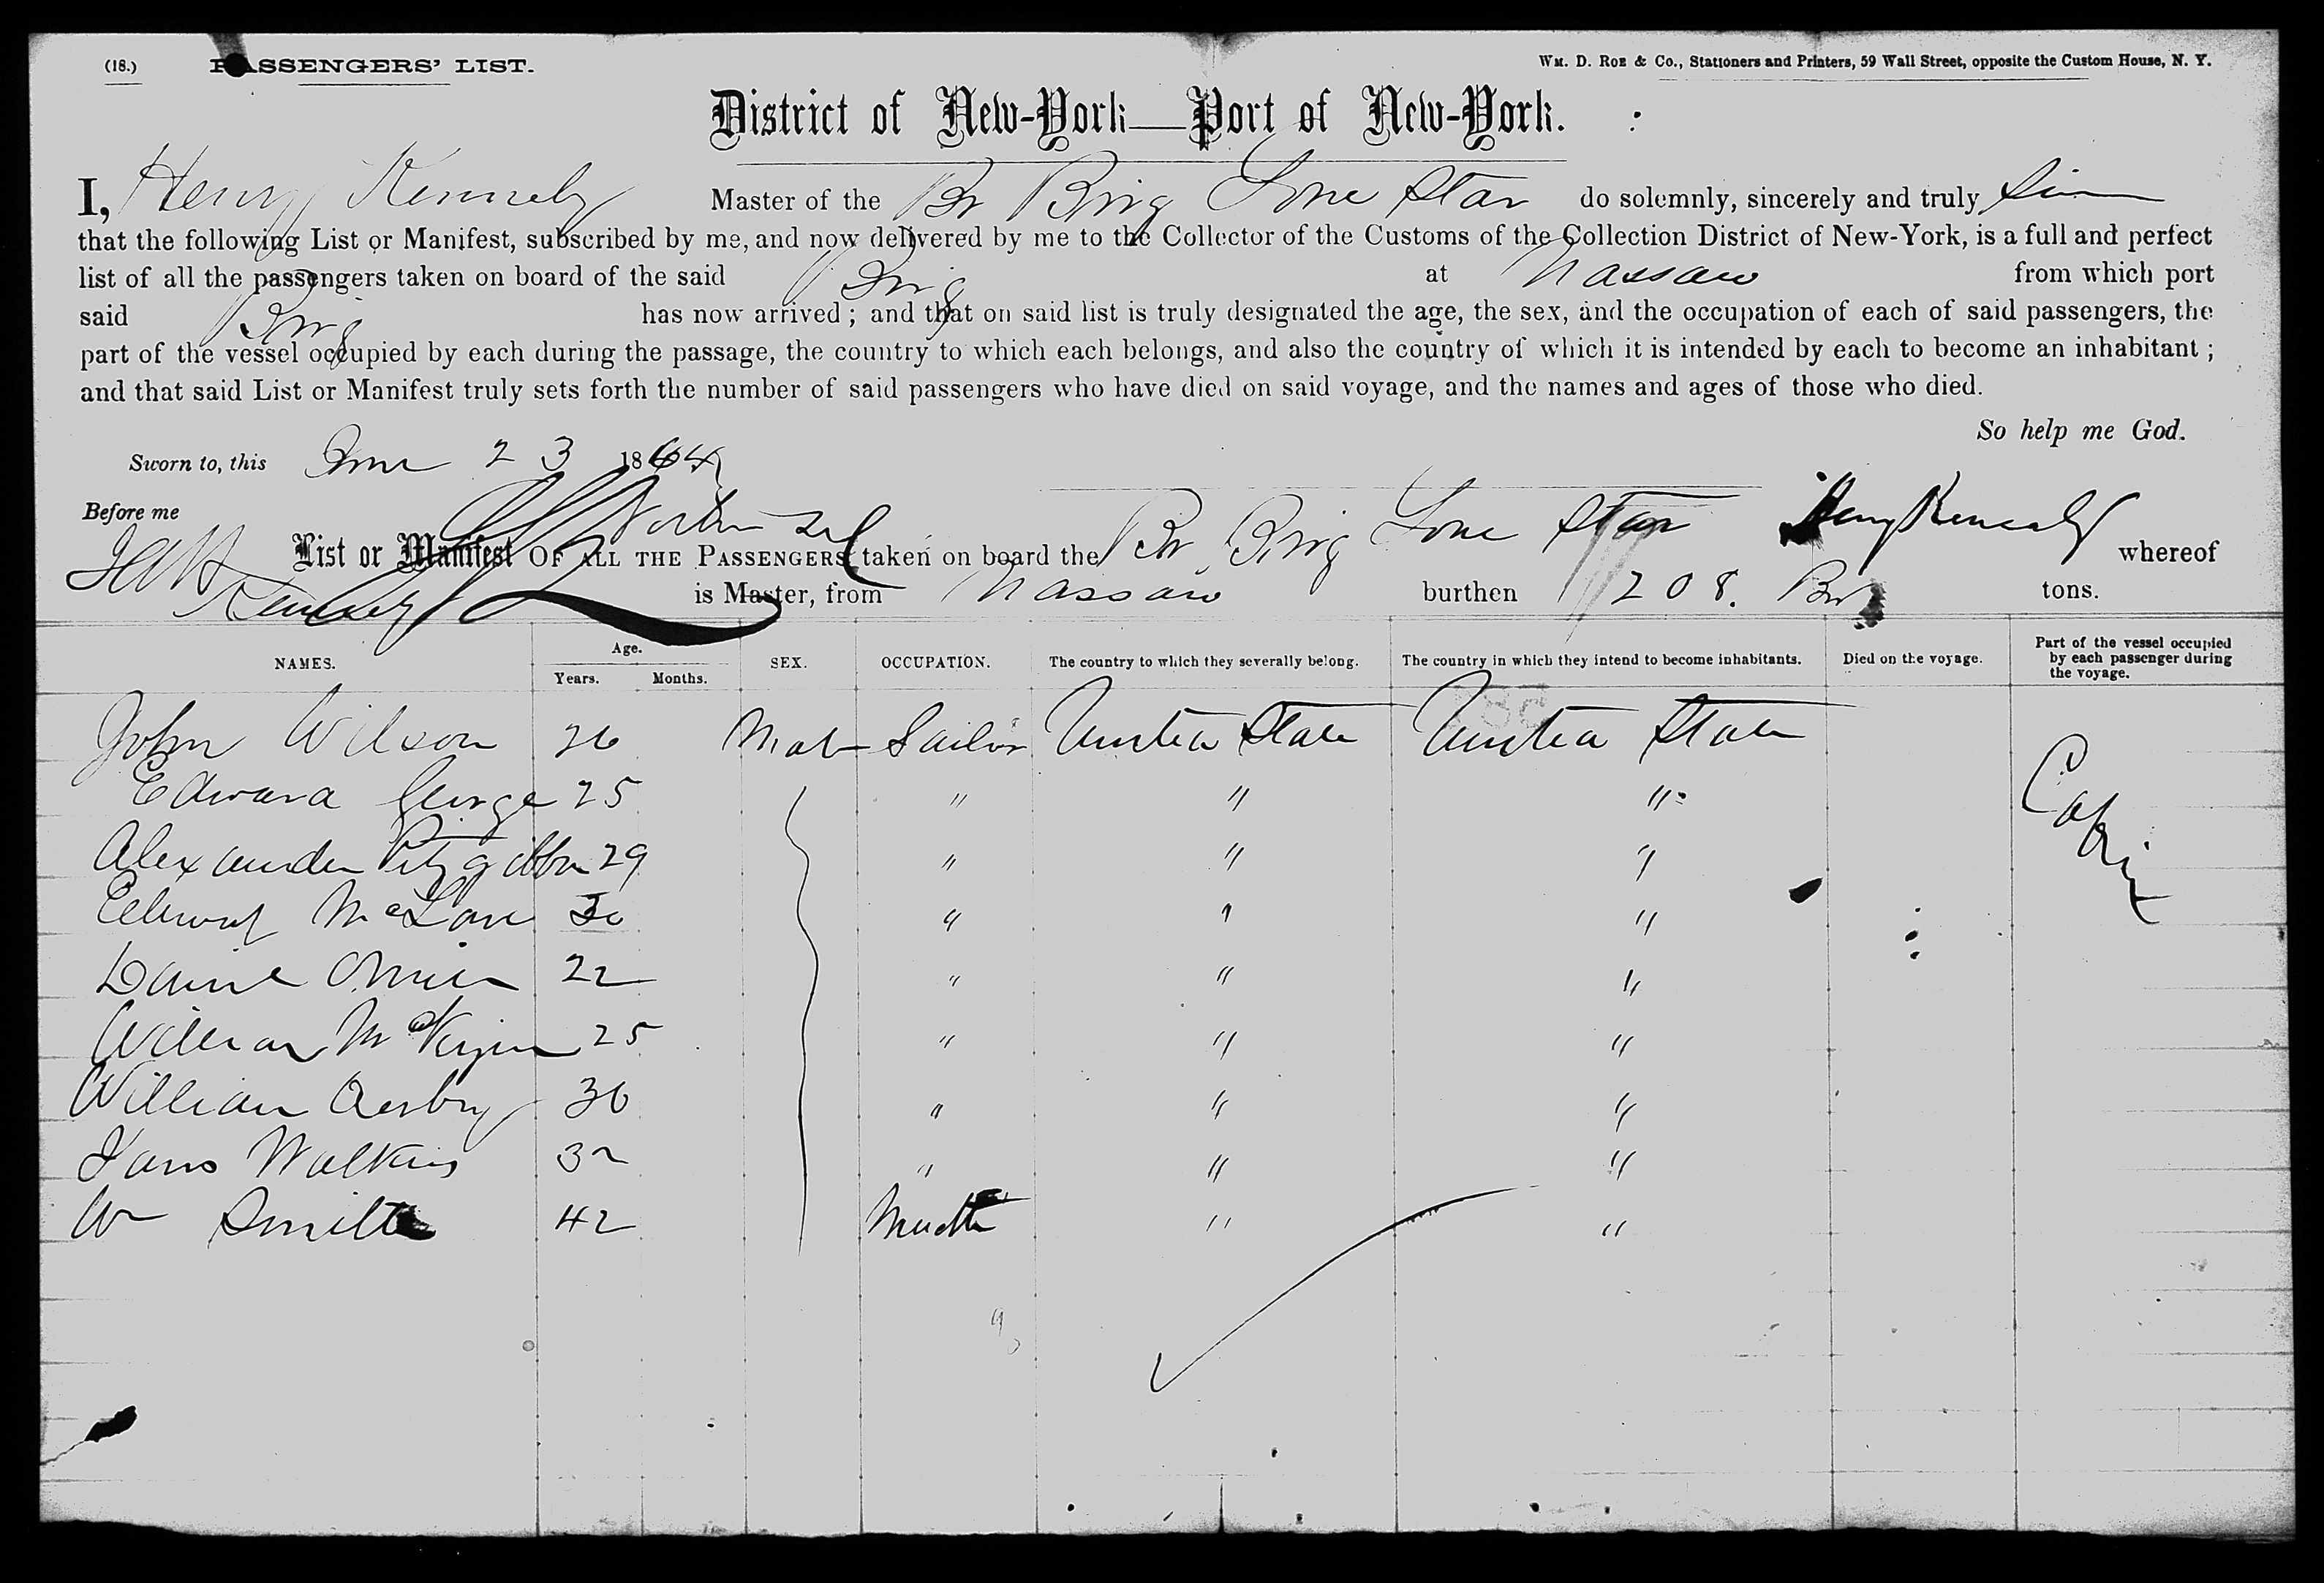 (18.) PASSENGERS' LIST. Wm. D. Roe & Co., Stationers and Printers, 59 Wall Street, opposite the Custom House, N. Y.
District of New-York—Port of New-York.
I, Henry Kennely Master of the Br Brig Lone Star do solemnly, sincerely and truly
that the following List or Manifest, subscribed by me, and now delivered by me to the Collector of the Customs of the Collection District of New-York, is a full and perfect
list of all the passengers taken on board of the said Brig at Nassau from which port
said Brig has now arrived ; and that on said list is truly designated the age, the sex, and the occupation of each of said passengers, the
part of the vessel occupied by each during the passage, the country to which each belongs, and also the country of which it is intended by each to become an inhabitant ;
and that said List or Manifest truly sets forth the number of said passengers who have died on said voyage, and the names and ages of those who died.
So help me God.
Sworn to, this June 23 1864
Before me
List or Manifest OF ALL THE PASSENGERS taken on board the Br Brig Lone Star Henry whereof
is Master, from Nassau burthen 208. Br tons.
NAMES. Age. Years. Months. SEX. OCCUPATION. The country to which they severally belong. The country in which they intend to become inhabitants. Died on the voyage. Part of the vessel occupied by each passenger during the voyage.
John Wilson 26 Male Sailor United State United State
Edward George 25 " " " Cabin
Alexander Fitzgibbon 29 " " "
Edward McLane 30 " " "
22 " " "
William 25 " " "
William 30 " " "
Watkins 32 " " "
Wm Smith 42 " "